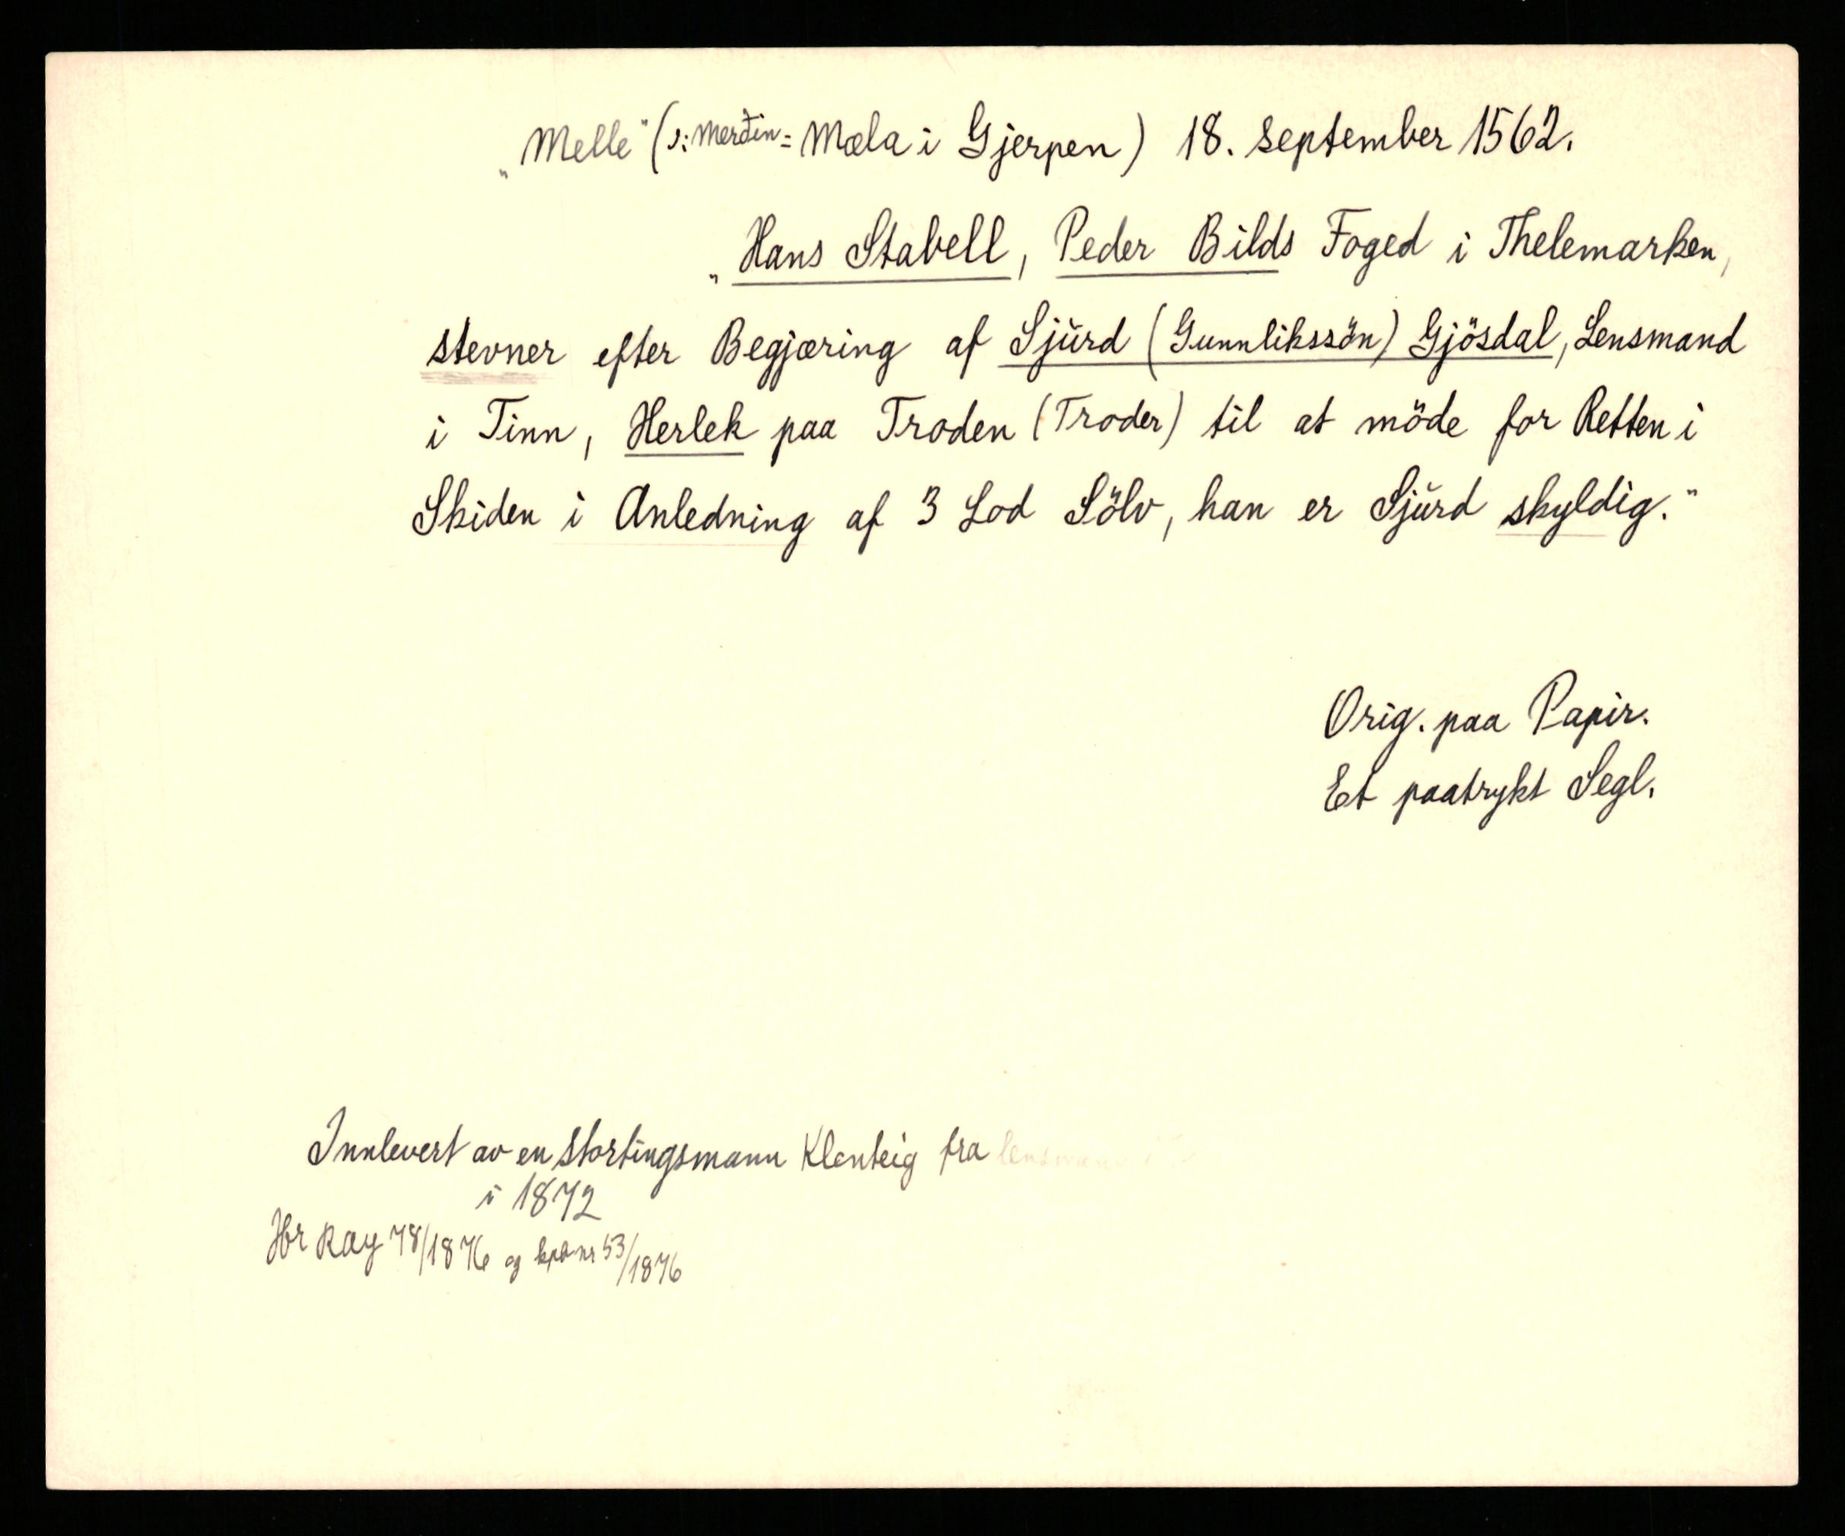 „Melle" (ɔ: Merðin = Mæla i Gjerpen) 18. september 1562.
„Hans Stabell, Peder Bilds Foged i Thelemarken,
stevner efter Begjæring af Sjŭrd (Gunnlikssön) Gjösdal, Lensmand
i Tinn, Herlek paa Troden (Troder) til at möde for Retten i
Skiden i Anledning af 3 Lod Sölv, han er Sjŭrd skyldig."
Orig. paa Papir.
Et paatrykt Segl.
Innlevert av en stortingsmann Klonteig fra lensmann
i 1872
Hr Ray 78/1876 og kpb nr 53/1876